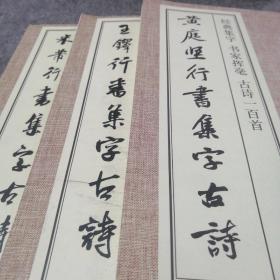 经典集字 书家挥毫 古诗一百首
黄庭坚行書集字古詩
王鐸行書集字古詩
米芾行書集字古詩